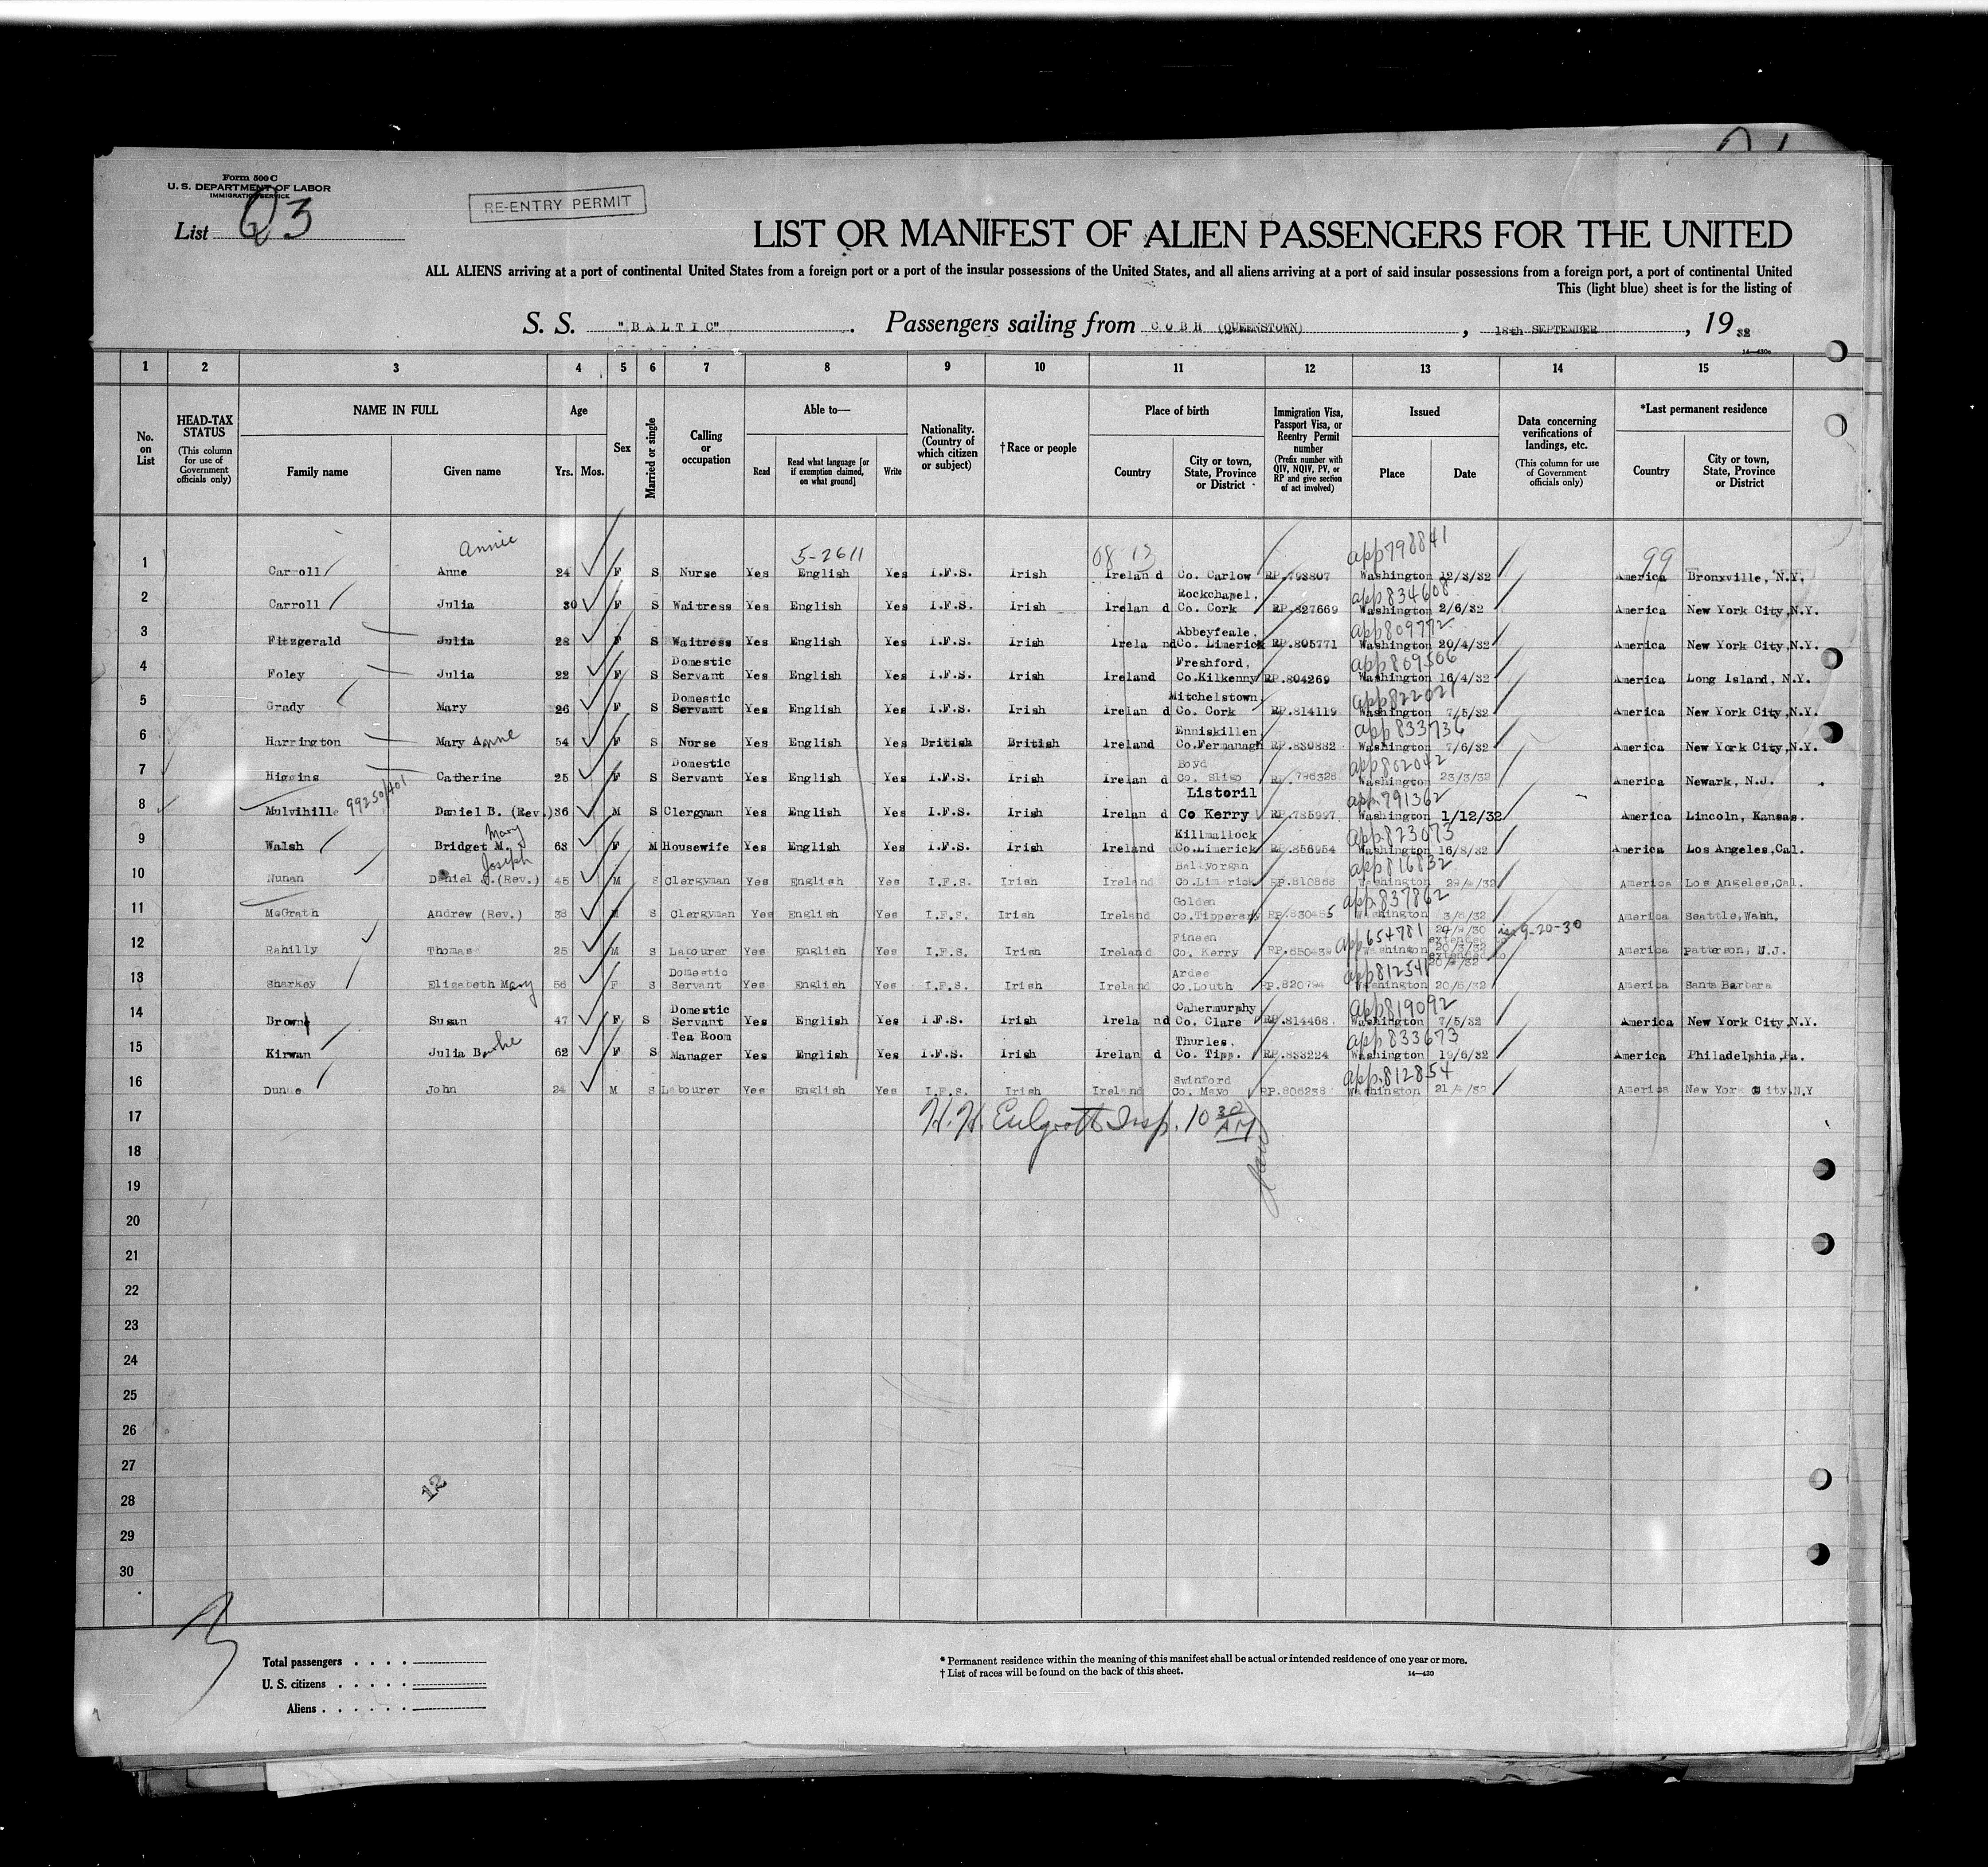 Form 500 C
U. S. DEPARTMENT OF LABOR
IMMIGRATION SERVICE
List 23
RE-ENTRY PERMIT
LIST OR MANIFEST OF ALIEN PASSENGERS FOR THE UNITED
ALL ALIENS arriving at a port of continental United States from a foreign port or a port of the insular possessions of the United States, and all aliens arriving at a port of said insular possessions from a foreign port, a port of continental United
This (light blue) sheet is for the listing of
S. S. "BALTIC" . Passengers sailing from COBH (QUEENSTOWN) , 18th SEPTEMBER , 19 32
14—430a
1 2 3 4 5 6 7 8 9 10 11 12 13 14 15
No. on List
HEAD-TAX STATUS (This column for use of Government officials only)
NAME IN FULL Family name Given name
Age Yrs. Mos.
Sex
Married or single
Calling or occupation
Able to— Read Read what language [or if exemption claimed, on what ground] Write
Nationality. (Country of which citizen or subject)
†Race or people
Place of birth Country City or town, State, Province or District
Immigration Visa, Passport Visa, or Reentry Permit number (Prefix number with QIV, NQIV, PV, or RP and give section of act involved)
Issued Place Date
Data concerning verifications of landings, etc. (This column for use of Government officials only)
*Last permanent residence Country City or town, State, Province or District
Annie 5-2611 08 13 app798841 99
1 Carroll Anne 24 F S Nurse Yes English Yes I.F.S. Irish Ireland Co. Carlow RP.793807 Washington 12/3/32 America Bronxville, N.Y.
Rockchapel, app834608
2 Carroll Julia 30 F S Waitress Yes English Yes I.F.S. Irish Ireland Co. Cork RP.827669 Washington 2/6/32 America New York City,N.Y.
Abbeyfeale. app809772
3 Fitzgerald Julia 28 F S Waitress Yes English Yes I.F.S. Irish Ireland Co. Limerick RP.805771 Washington 20/4/32 America New York City,N.Y.
Domestic Freshford, app809506
4 Foley Julia 22 F S Servant Yes English Yes I.F.S. Irish Ireland Co.Kilkenny RP.804269 Washington 16/4/32 America Long Island, N.Y.
Domestic Mitchelstown, app822021
5 Grady Mary 26 F S Servant Yes English Yes I.F.S. Irish Ireland Co. Cork RP.814119 Washington 7/5/32 America New York City,N.Y.
Enniskillen, app833736
6 Harrington Mary Anne 54 F S Nurse Yes English Yes British British Ireland Co.Fermanagh RP.830832 Washington 7/6/32 America New York City,N.Y.
Domestic Boyd app802042
7 Higgins Catherine 25 F S Servant Yes English Yes I.F.S. Irish Ireland Co. Sligo RP.796328 Washington 23/3/32 America Newark, N.J.
99250/401 Listoril app.791362
8 Mulvihill Daniel B. (Rev.) 36 M S Clergyman Yes English Yes I.F.S. Irish Ireland Co Kerry RP.785997 Washington 1/12/32 America Lincoln, Kansas.
Mary Killmallock app.823073
9 Walsh Bridget M. 63 F M Housewife Yes English Yes I.F.S. Irish Ireland Co.Limerick RP.856954 Washington 16/8/32 America Los Angeles,Cal.
Joseph Ballyorgan app816832
10 Nunan Daniel J.(Rev.) 45 M S Clergyman Yes English Yes I.F.S. Irish Ireland Co.Limerick RP.810868 Washington America Los Angeles,Cal.
Golden app.837862
11 McGrath Andrew (Rev.) 38 M S Clergyman Yes English Yes I.F.S. Irish Ireland Co.Tipperary RP.830455 Washington 3/6/32 America Seattle,Wash.
Fineen app654781 24/9/30 extended to 9-20-30
12 Rahilly Thomas 25 M S Labourer Yes English Yes I.F.S. Irish Ireland Co. Kerry RP.650439 Washington 20/3/32 America patterson, N.J.
extended to
Domestic Ardee app812541
13 Sharkey Elizabeth Mary 56 F S Servant Yes English Yes I.F.S. Irish Ireland Co.Louth RP.820794 Washington 20/5/32 America Santa Barbara
Domestic Cahermurphy app819092
14 Browne Susan 47 F S Servant Yes English Yes I.F.S. Irish Ireland Co. Clare RP.814468. Washington 7/5/32 America New York City,N.Y.
Tea Room Thurles, app833673
15 Kirwan Julia Bourke 62 F S Manager Yes English Yes I.F.S. Irish Ireland Co. Tipp. RP.833224 Washington 19/6/32 America Philadelphia,Pa.
Swinford app.812854
16 Dunne John 24 M S Labourer Yes English Yes I.F.S. Irish Ireland Co. Mayo RP.806238 Washington 21/4/32 America New York City,N.Y
17 H.H. Insp. 10 30 AM
18
19
20
21
22
23
24
25
26
27
28 12
29
30
Total passengers
U. S. citizens
Aliens
* Permanent residence within the meaning of this manifest shall be actual or intended residence of one year or more.
† List of races will be found on the back of this sheet.
14—430